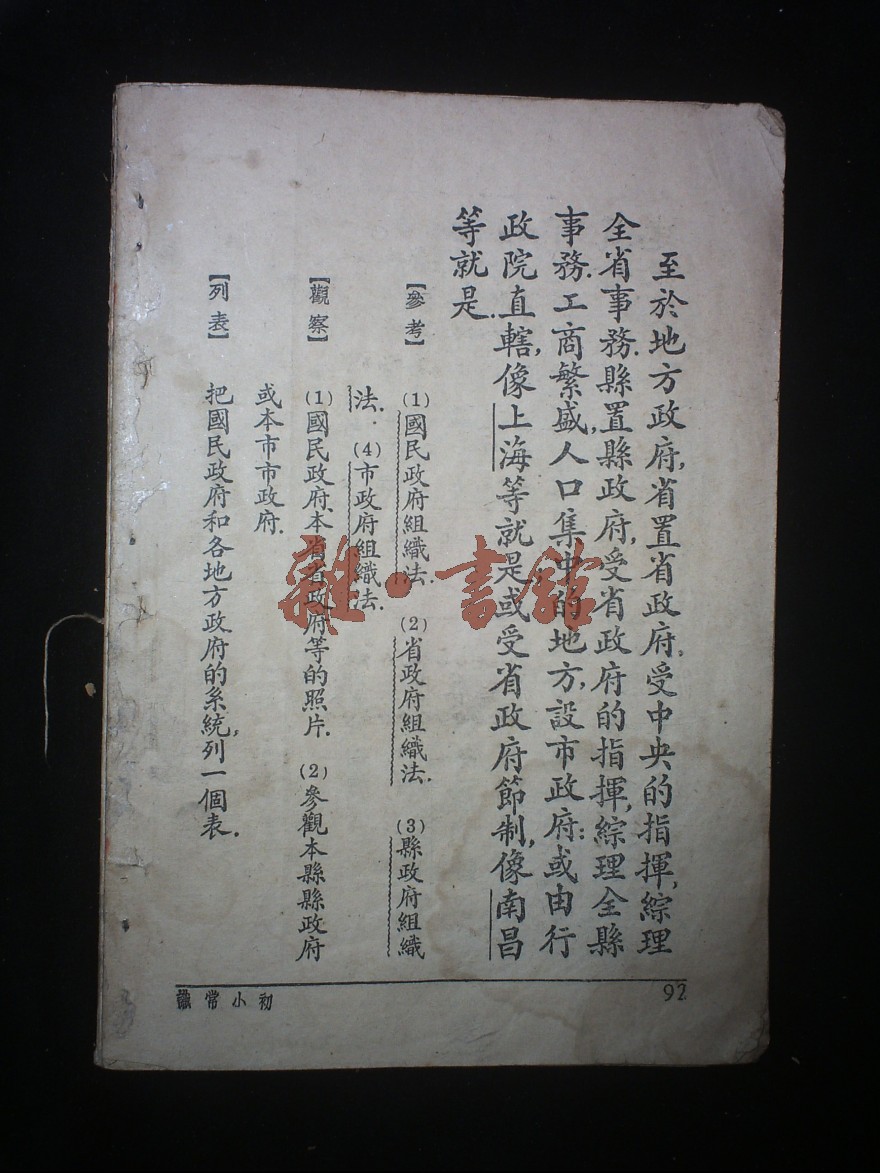 至於地方政府，省置省政府，受中央的指揮，綜理
全省事務．縣置縣政府，受省政府的指揮，綜理全縣
事務．工商繁盛，人口集中的地方，設市政府：或由行
政院直轄，像上海等就是，或受省政府節制，像南昌
等就是．
【參考】 (1)國民政府組織法． (2)省政府組織法． (3)縣政府組織
法． (4)市政府組織法．
【觀察】 (1)國民政府、本省省政府等的照片． (2)參觀本縣縣政府
或本市市政府．
【列表】 把國民政府和各地方政府的系統，列一個表．
識常小初
92
雜·書館